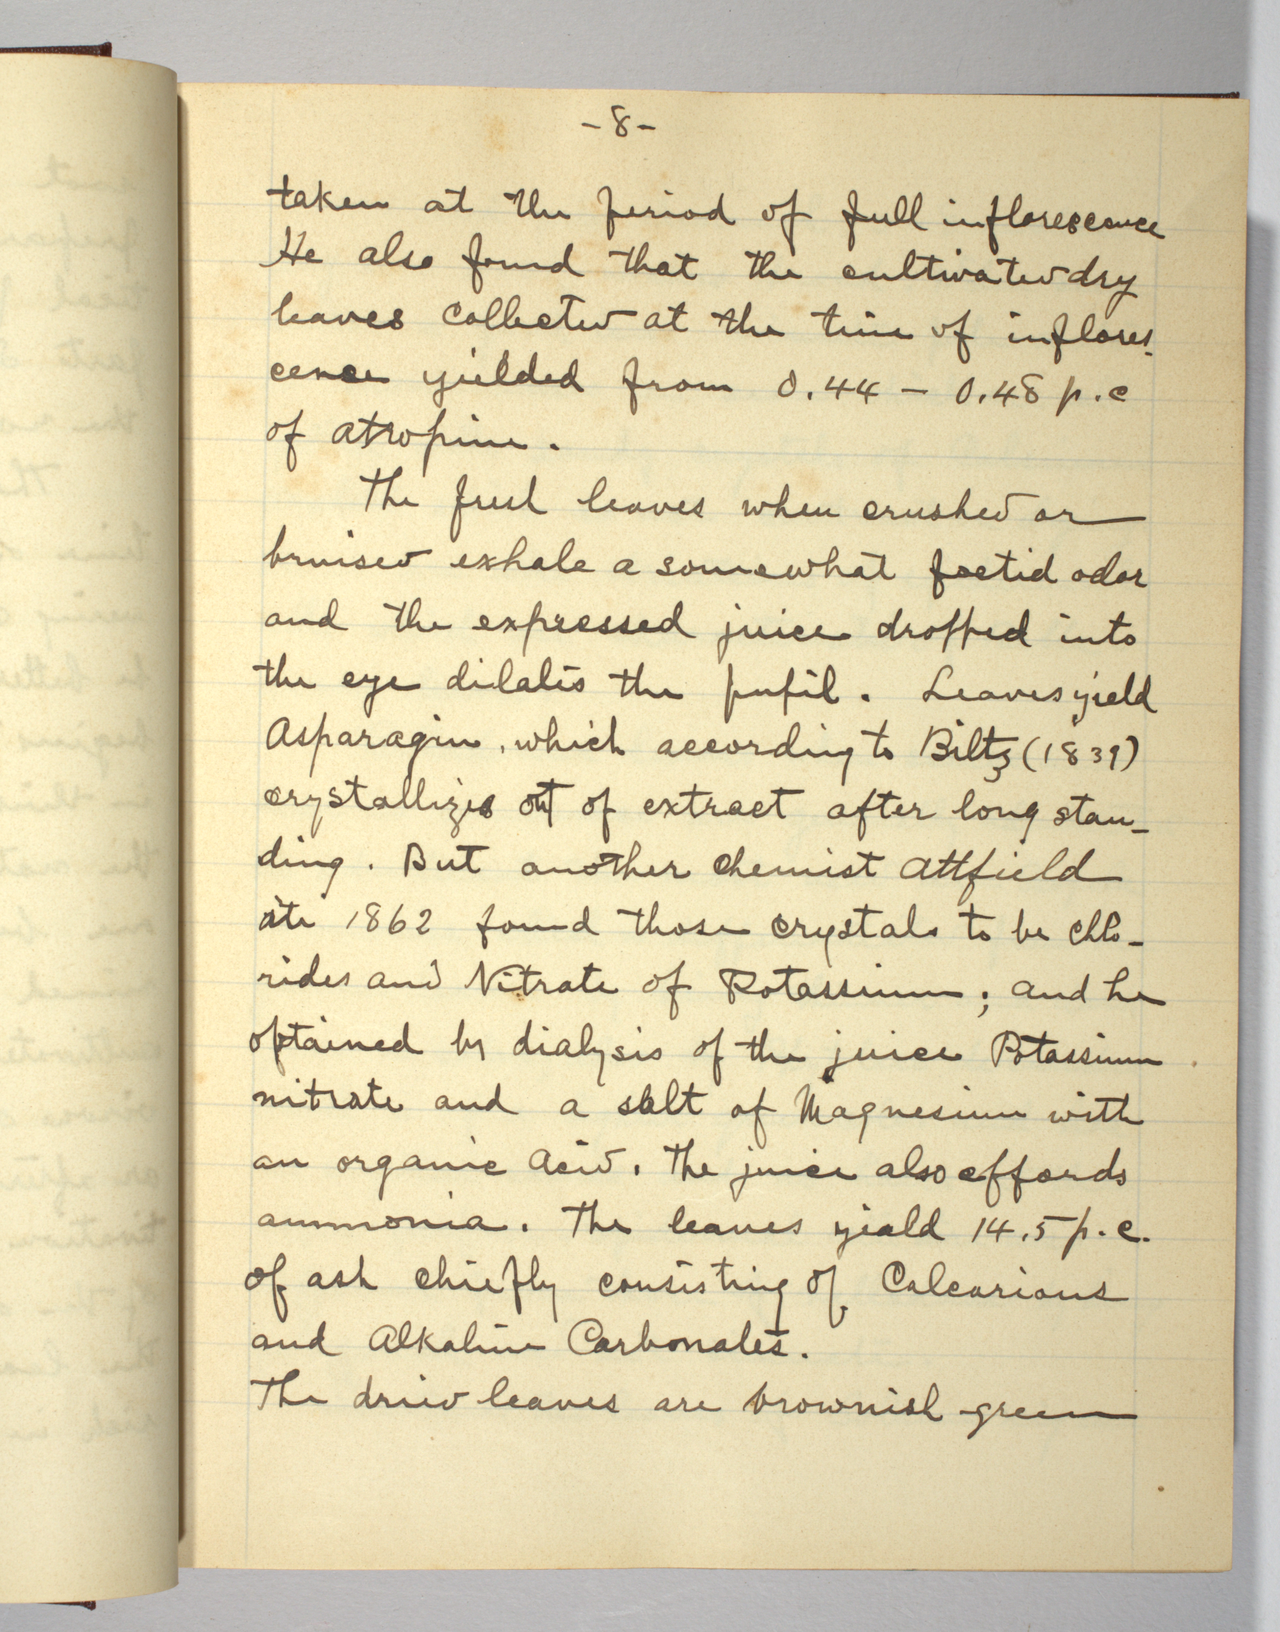 -8-
taken at the period of full inflorescence
He also found that the cultivated dry
leaves collected at the time of inflores-
cence yielded from 0.44 - 0.48 p.c
of atropine.
The fresh leaves when crushed or
bruised exhale a somewhat foetid odor
and the expressed juice dropped into
the eye dilates the pupil. Leaves yield
Asparagin, which according to Biltz (1839)
crystallizes out of extract after long stan-
ding. But another chemist Attfield
1862 found those crystals to be chlo-
rides and Nitrate of Potassium; and he
optained by dialysis of the juice Potassium
nitrate and a salt of Magnesium with
an organic Acid. The juice also affords
ammonia. The leaves yield 14.5 p.c.
of ash chiefly consisting of Calcarious
and Alkaline Carbonates.
The dried leaves are brownish-green